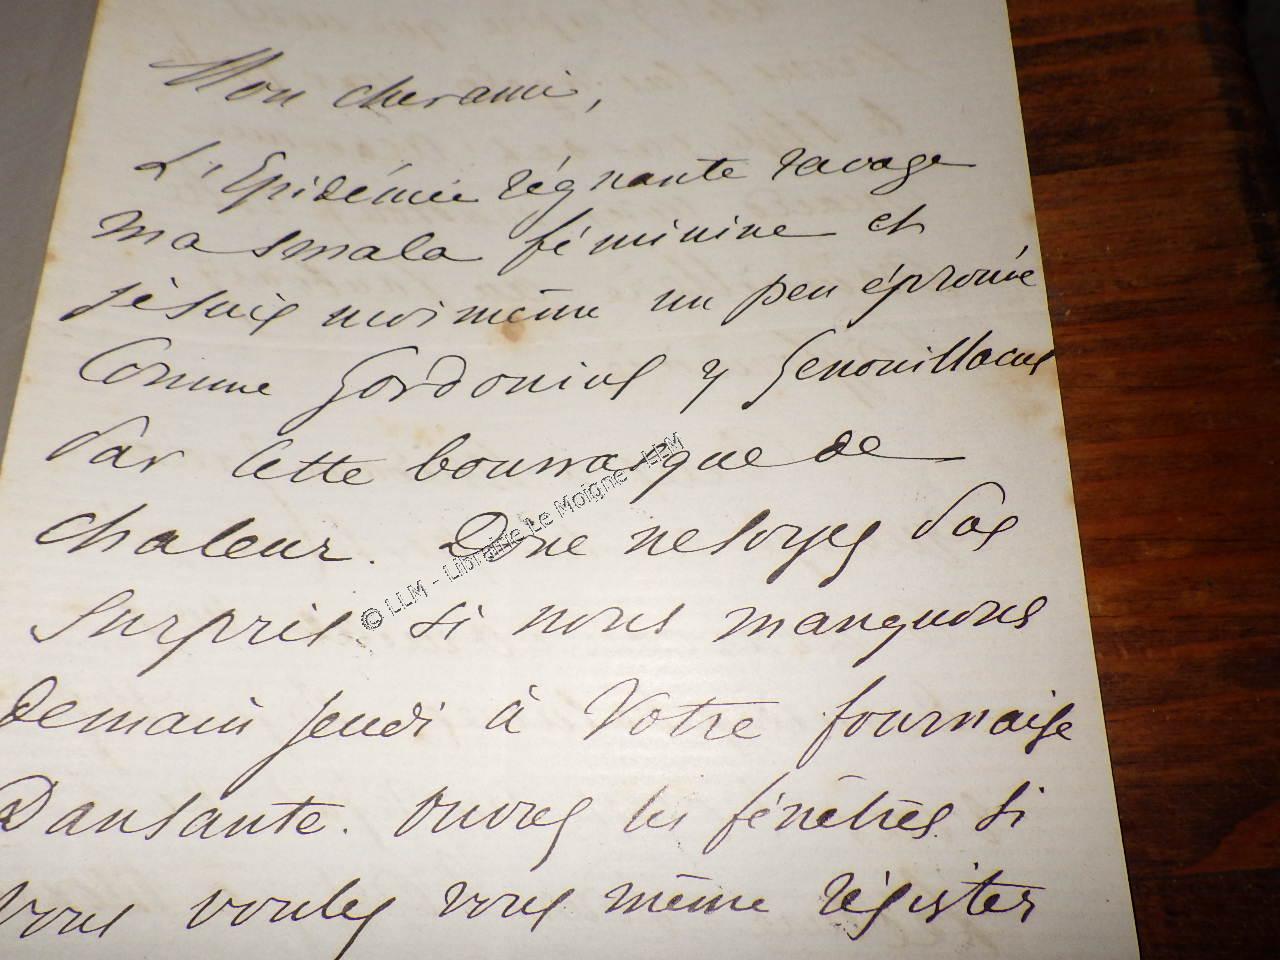 Mon cher ami,
L'Epidémie régnante ravage
ma smala féminine et
je suis moi même un peu éprouvé
Comme Gordonius y Genouillacus
Par cette bourrasque de
chaleur. Donc ne soyez Pas
surpris si nous manquons
demain jeudi à Votre fournaise
Dansante. Ouvrez les fénêtres si
vous voulez vous même résister
© LLM - Librairie Le Moigne - LLM